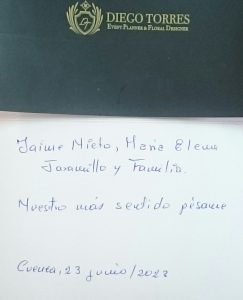 DIEGO TORRES
EVENT PLANNER & FLORAL DESIGNER
Jaime Nieto, María Elena
Jaramillo y Familia.
Nuestro más sentido pésame
Cuenca, 23 junio/2023